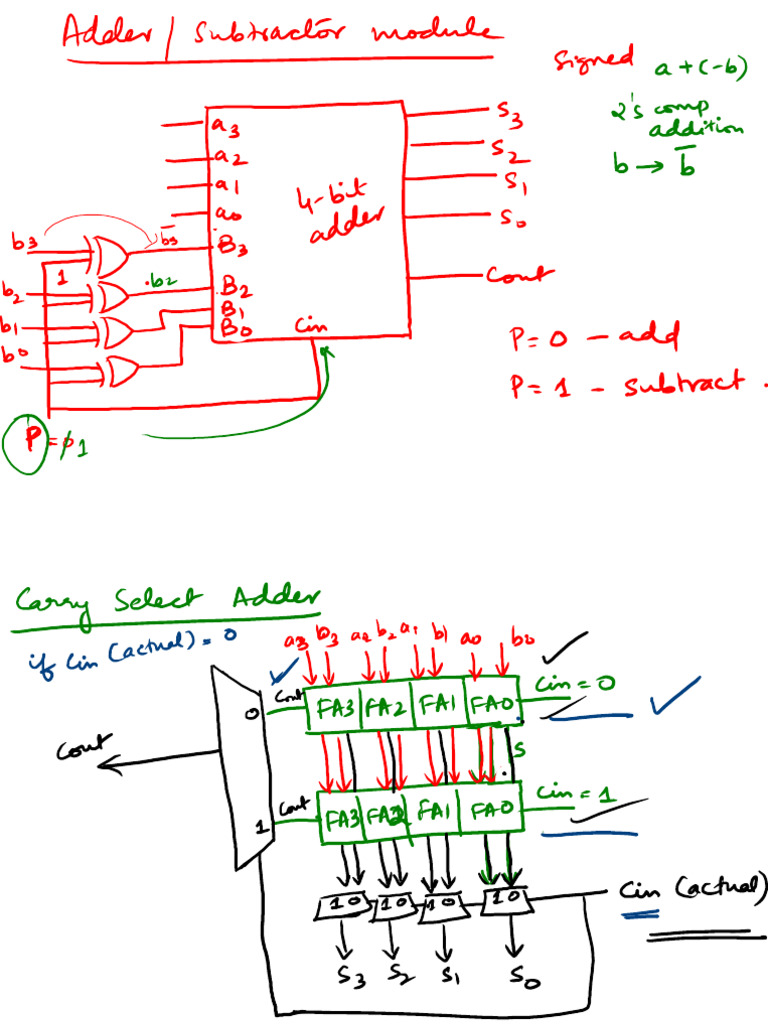 Adder / Subtractor module
signed a + (-b)
2's comp
addition
b → b̅
a3
a2
a1
a0
b3 b̅3 B3
1
b2 .b2 B2
b1 B1
b0 B0
4-bit
adder
Cin
S3
S2
S1
S0
Cout
P = 0 - add
P = 1 - subtract .
P = 0 1
Carry Select Adder
if Cin (actual) = 0
a3 b3 a2 b2 a1 b1 a0 b0
0 Cout FA3 FA2 FA1 FA0 Cin = 0
Cout
S
1 Cout FA3 FA2 FA1 FA0 Cin = 1
1 0 1 0 1 0 1 0 Cin (actual)
S3 S2 S1 S0